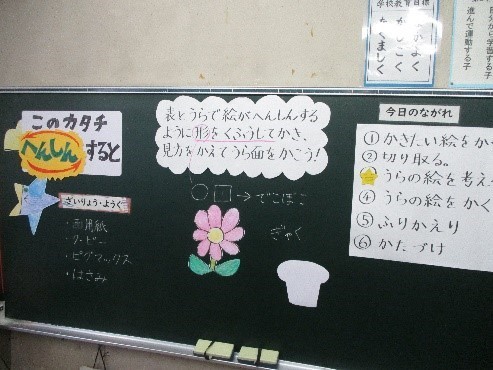 学校教育目標
つよく
かしこく
たくましく
進んで運動する子
このカタチ
へんしん
すると
ざいりょう・ようぐ
・画用紙
・クーピー
・ピグマックス
・はさみ
表とうらで絵がへんしんする
ように形をくふうしてかき、
見方をかえてうら面をかこう!
→でこぼこ
ぎゃく
今日のながれ
①かきたい絵をか
②切り取る。
うらの絵を考え
④うらの絵をかく
⑤ふりかえり
⑥かたづけ